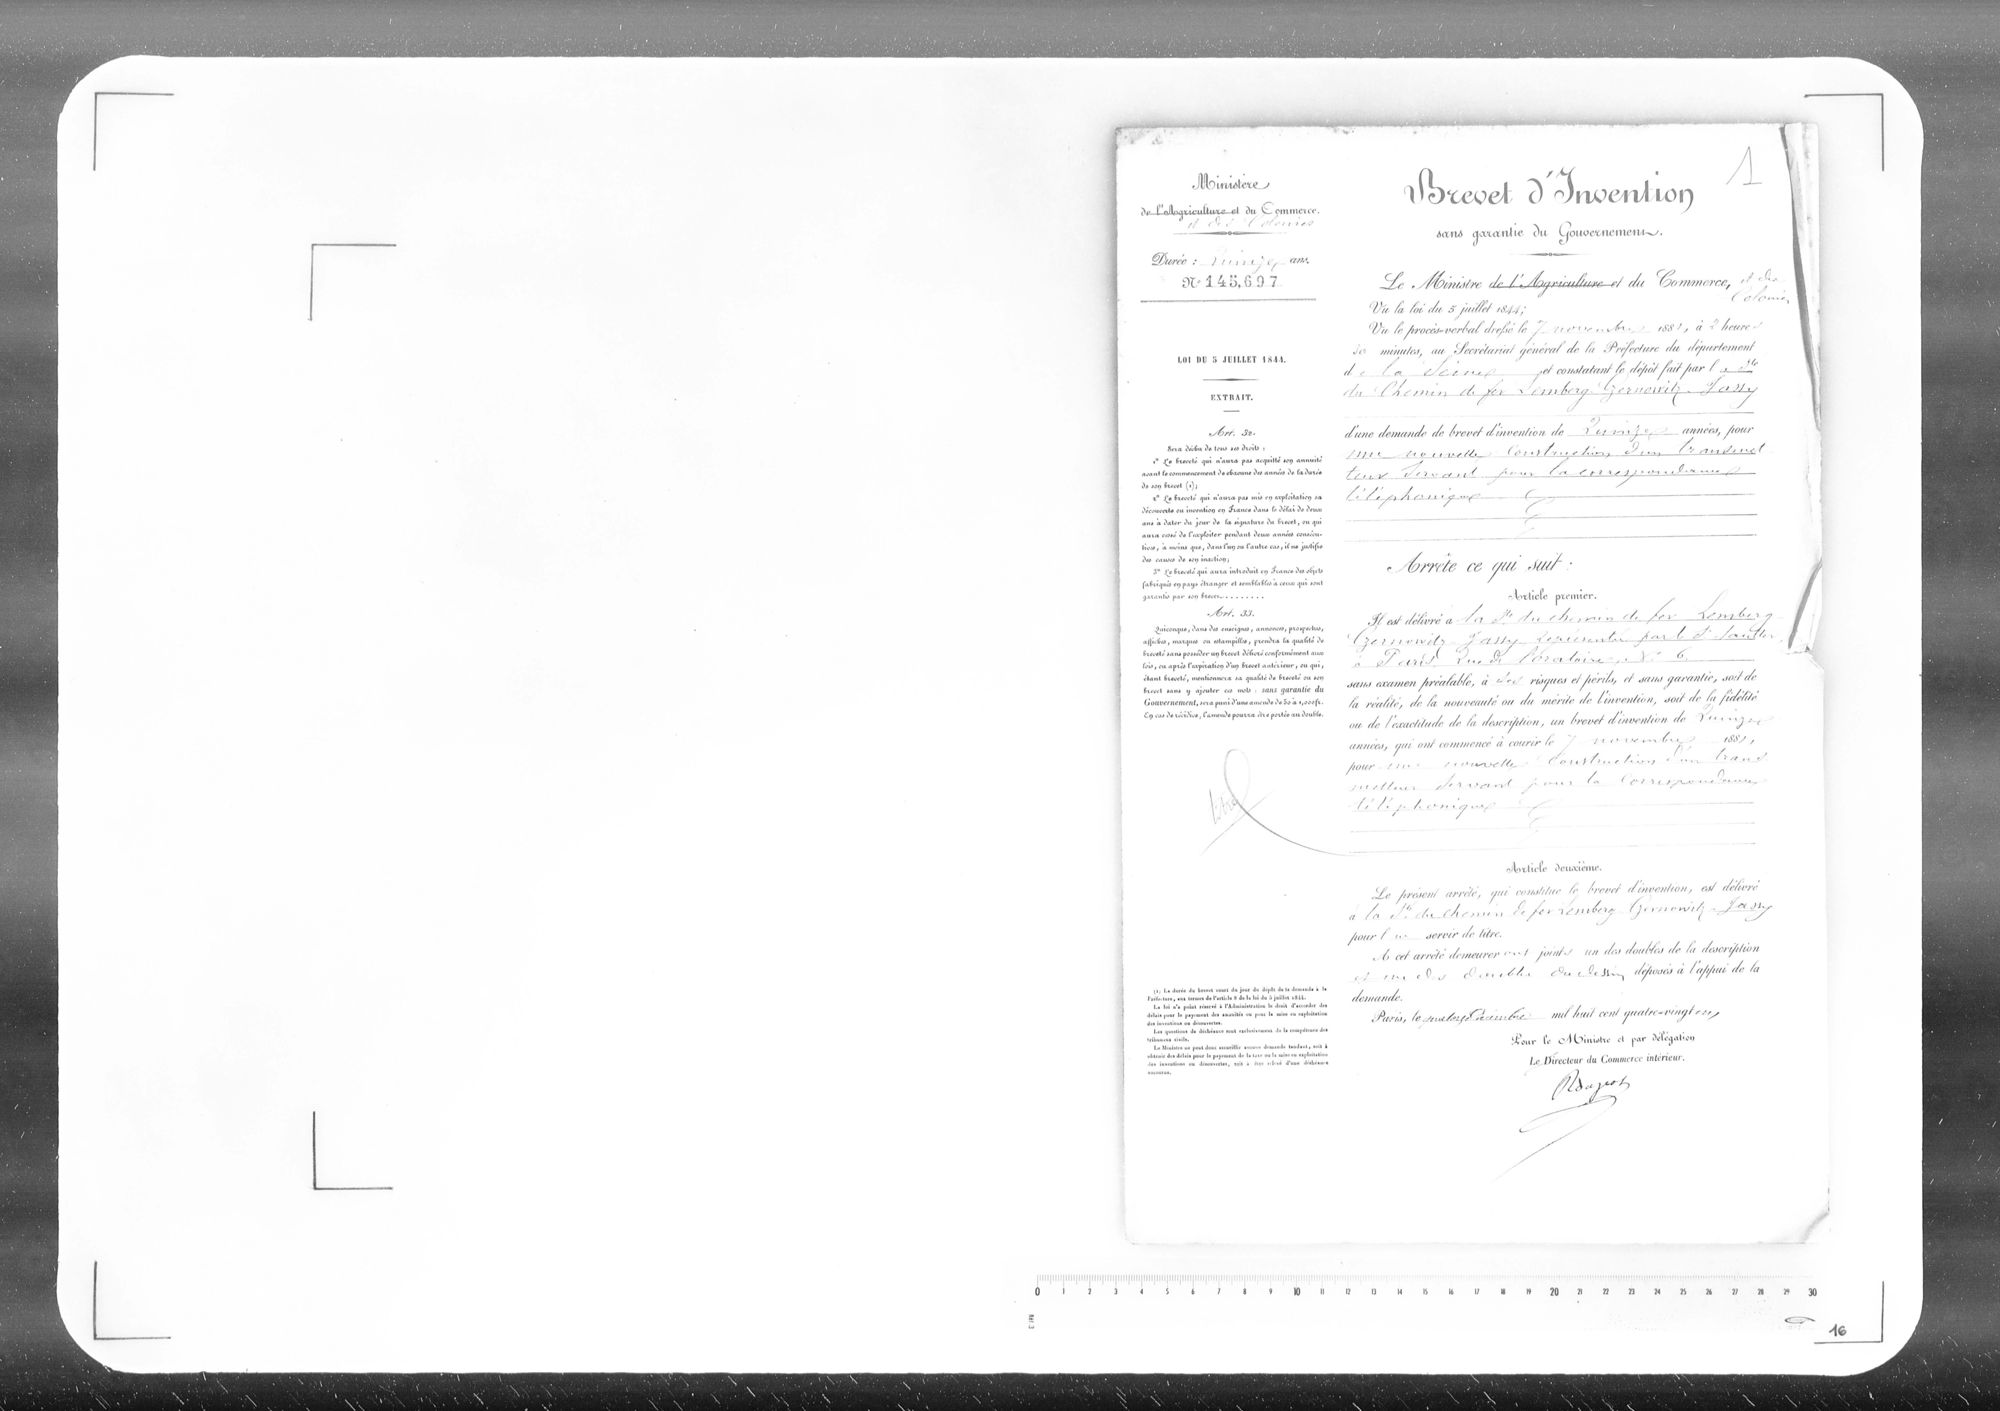 1
Ministère
de l'Agriculture et du Commerce.
et des Colonies
Durée : Quinze ans.
N° 145,697
LOI DU 5 JUILLET 1844.
EXTRAIT.
Art. 32.
Sera déchu de tous ses droits :
1° Le breveté qui n'aura pas acquitté son annuité
avant le commencement de chacune des années de la durée
de son brevet (1);
2° Le breveté qui n'aura pas mis en exploitation sa
découverte ou invention en France dans le délai de deux
ans à dater du jour de la signature du brevet, ou qui
aura cessé de l'exploiter pendant deux années consécu-
tives, à moins que, dans l'un ou l'autre cas, il ne justifie
des causes de son inaction;
3° Le breveté qui aura introduit en France des objets
fabriqués en pays étranger et semblables à ceux qui sont
garantis par son brevet.........
Art. 33.
Quiconque, dans des enseignes, annonces, prospectus,
affiches, marques ou estampilles, prendra la qualité de
breveté sans posséder un brevet délivré conformément aux
lois, ou après l'expiration d'un brevet antérieur, ou qui,
étant breveté, mentionnera sa qualité de breveté ou son
brevet sans y ajouter ces mots : sans garantie du
Gouvernement, sera puni d'une amende de 50 à 1,000 fr.
En cas de récidive, l'amende pourra être portée au double.
(1) La durée du brevet court du jour du dépôt de la demande à la
Préfecture, aux termes de l'article 8 de la loi du 5 juillet 1844.
La loi n'a point réservé à l'Administration le droit d'accorder des
délais pour le payement des annuités ou pour la mise en exploitation
des inventions ou découvertes.
Les questions de déchéance sont exclusivement de la compétence des
tribunaux civils.
Le Ministre ne peut donc accueillir aucune demande tendant, soit à
obtenir des délais pour le payement de la taxe ou la mise en exploitation
des inventions ou découvertes, soit à être relevé d'une déchéance
encourue.
Brevet d'Invention
sans garantie du Gouvernement.
Le Ministre de l'Agriculture et du Commerce, et des
Colonies
Vu la loi du 5 juillet 1844;
Vu le procès-verbal dressé le 7 novembre 1881, à 2 heures
30 minutes, au Secrétariat général de la Préfecture du département
de la Seine et constatant le dépôt fait par la Sté
du Chemin de fer Lemberg-Czernowitz-Jassy
d'une demande de brevet d'invention de Quinze années, pour
une nouvelle construction d'un transmet-
teur servant pour la correspondance
téléphonique
Arrête ce qui suit :
Article premier.
Il est délivré à la Sté du chemin de fer Lemberg-
Czernowitz-Jassy représentée par le Sr
à Paris, Rue de l'oratoire, N° 6
sans examen préalable, à ses risques et périls, et sans garantie, soit de
la réalité, de la nouveauté ou du mérite de l'invention, soit de la fidélité
ou de l'exactitude de la description, un brevet d'invention de Quinze
années, qui ont commencé à courir le 7 novembre 1881,
pour une nouvelle construction d'un trans
metteur servant pour la correspondance
téléphonique
Article deuxième.
Le présent arrêté, qui constitue le brevet d'invention, est délivré
à la Sté du chemin de fer Lemberg-Czernowitz-Jassy
pour lui servir de titre.
A cet arrêté demeureront joints un des doubles de la description
et un des doubles du dessin déposés à l'appui de la
demande.
Paris, le décembre mil huit cent quatre-vingt un
Pour le Ministre et par délégation
Le Directeur du Commerce intérieur.
0 1 2 3 4 5 6 7 8 9 10 11 12 13 14 15 16 17 18 19 20 21 22 23 24 25 26 27 28 29 30
16